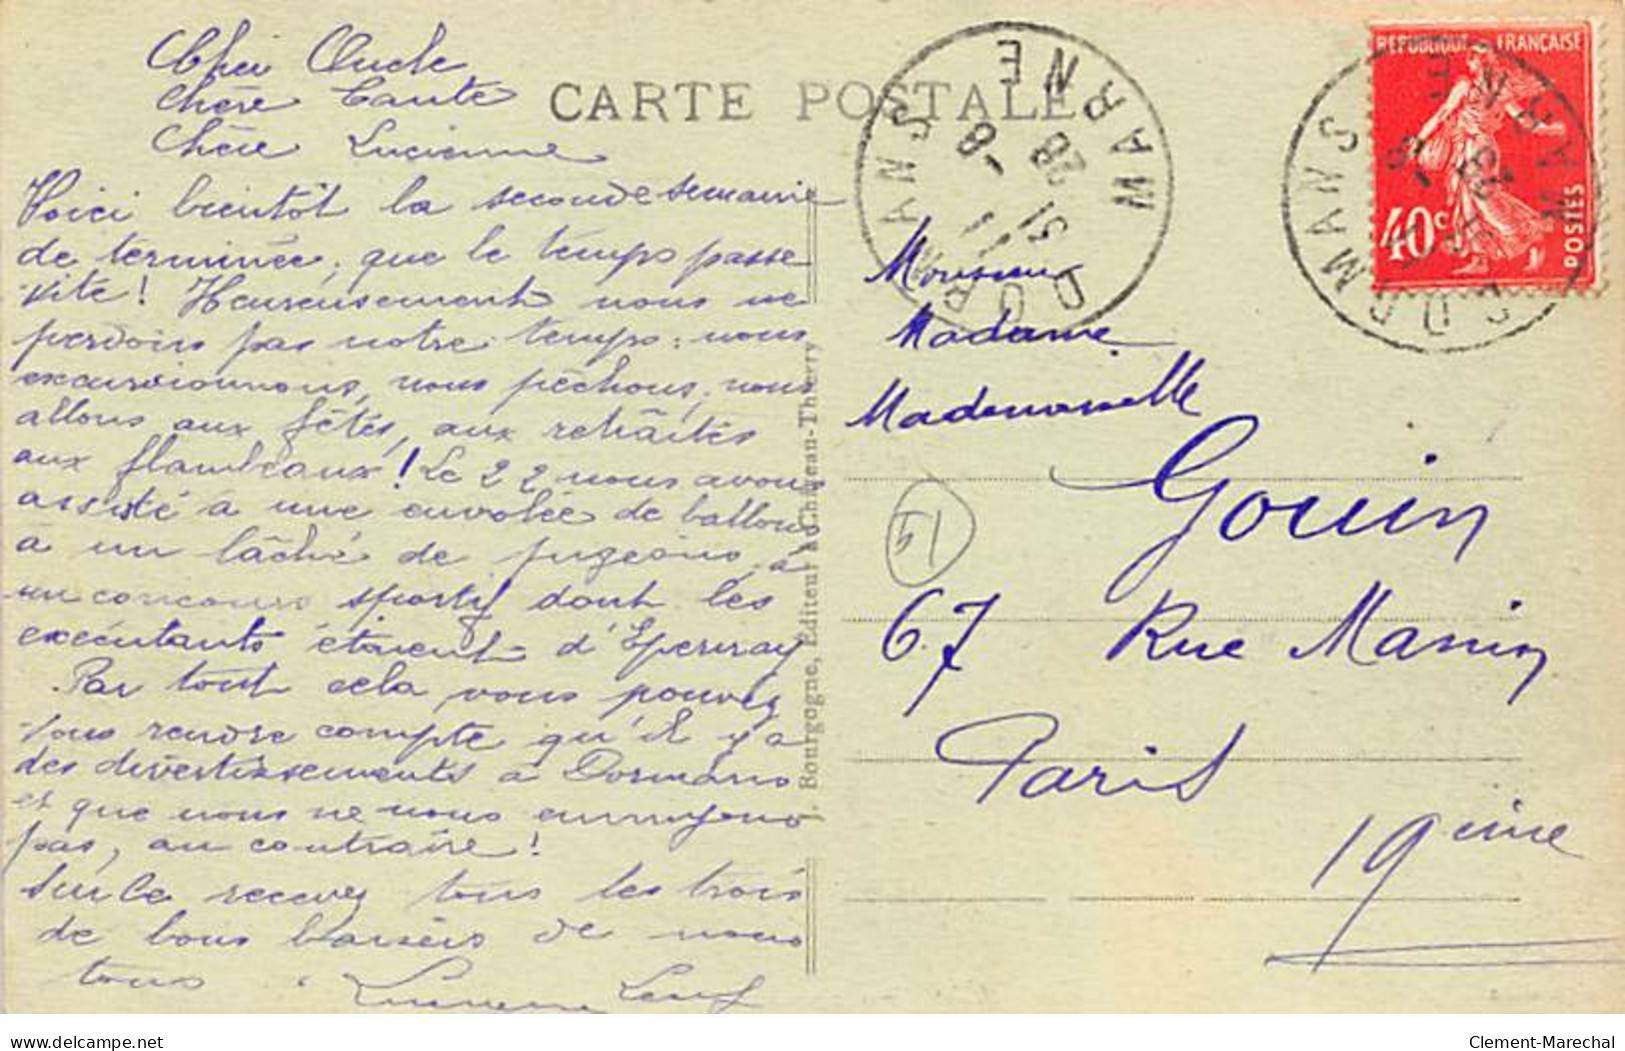 Cher Oncle
Chère Tante
Chère Lucienne
Voici bientôt la seconde semaine
de terminée, que le temps passe
vite! Heureusement nous ne
perdons pas notre temps: nous
excursionnons, nous pêchons, nous
allons aux fêtes, aux retraites
aux flambeaux! Le 22 nous avons
assisté à une envolée de ballons
à un lâché de pigeons, à
un concours sportif dont les
exécutants étaient d'Epernay
Par tout cela vous pouvez
vous rendre compte qu'il y a
des divertissements à Dormans
et que nous ne nous ennuyons
pas, au contraire!
Sur ce recevez tous les trois
de bons baisers de nous
tous.
CARTE POSTALE
J. Bourgogne, Editeur à Château-Thierry
DORMANS MARNE
28
-8
RÉPUBLIQUE FRANÇAISE
40c
POSTES
DORMANS MARNE
Monsieur
Madame
Mademoiselle
Gouin
51
67 Rue Manin
Paris
19ème
delcampe.net
Clement-Marechal